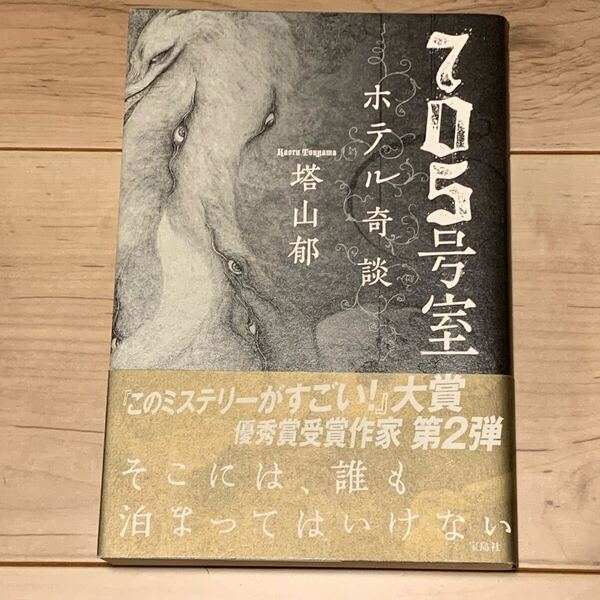 705号室
ホテル奇談
Kaoru Touyama
塔山郁
『このミステリーがすごい!』大賞
優秀賞受賞作家 第2弾
そこには、誰も
泊まってはいけない
宝島社